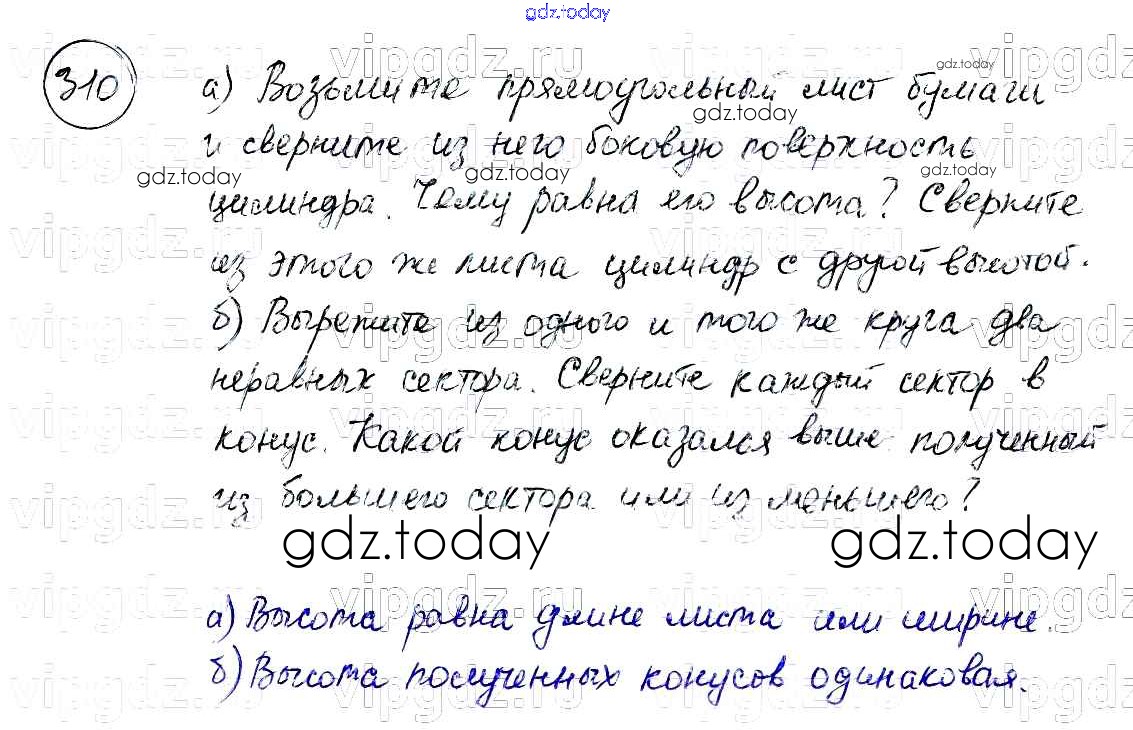 gdz.today
310
а) Возьмите прямоугольный лист бумаги
и сверните из него боковую поверхность
цилиндра. Чему равна его высота? Сверните
из этого же листа цилиндр с другой высотой.
б) Вырежите из одного и того же круга два
неравных сектора. Сверните каждый сектор в
конус. Какой конус оказался выше полученный
из большего сектора или из меньшего?
gdz.today gdz.today
а) Высота равна длине листа или ширине.
б) Высота полученных конусов одинаковая.